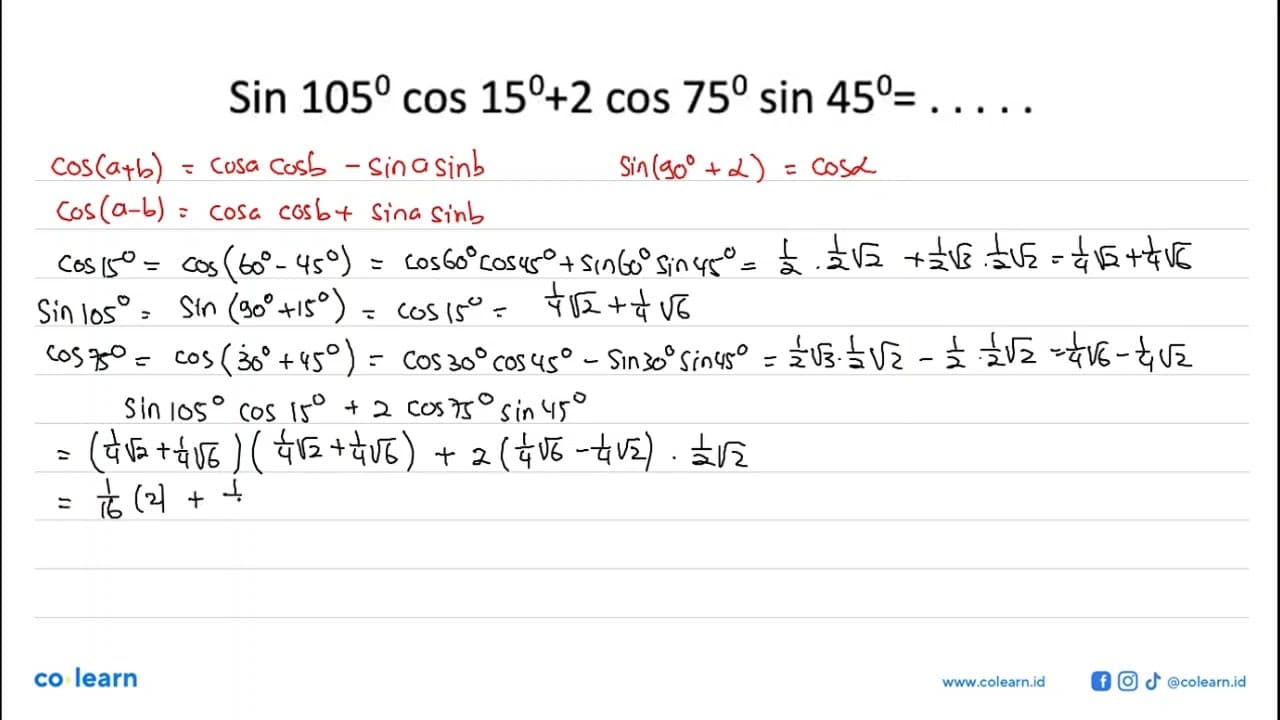 Sin 105⁰ cos 15⁰+2 cos 75⁰ sin 45⁰= . . . . .
cos(a+b) = cosa cosb - sina sinb
sin(90° + α) = cosα
cos(a-b) = cosa cosb + sina sinb
cos 15° = cos(60° - 45°) = cos60° cos45° + sin60° sin45° = 1/2 . 1/2√2 + 1/2√3 . 1/2√2 = 1/4√2 + 1/4√6
Sin 105° = Sin (90° + 15°) = cos 15° = 1/4√2 + 1/4√6
cos 75° = cos (30° + 45°) = cos 30° cos 45° - Sin30° Sin45° = 1/2√3 . 1/2√2 - 1/2 . 1/2√2 = 1/4√6 - 1/4√2
sin 105° cos 15° + 2 cos 75° sin 45°
= (1/4√2 + 1/4√6) (1/4√2 + 1/4√6) + 2 (1/4√6 - 1/4√2) . 1/2√2
= 1/16 (2) +
co learn
www.colearn.id
@colearn.id